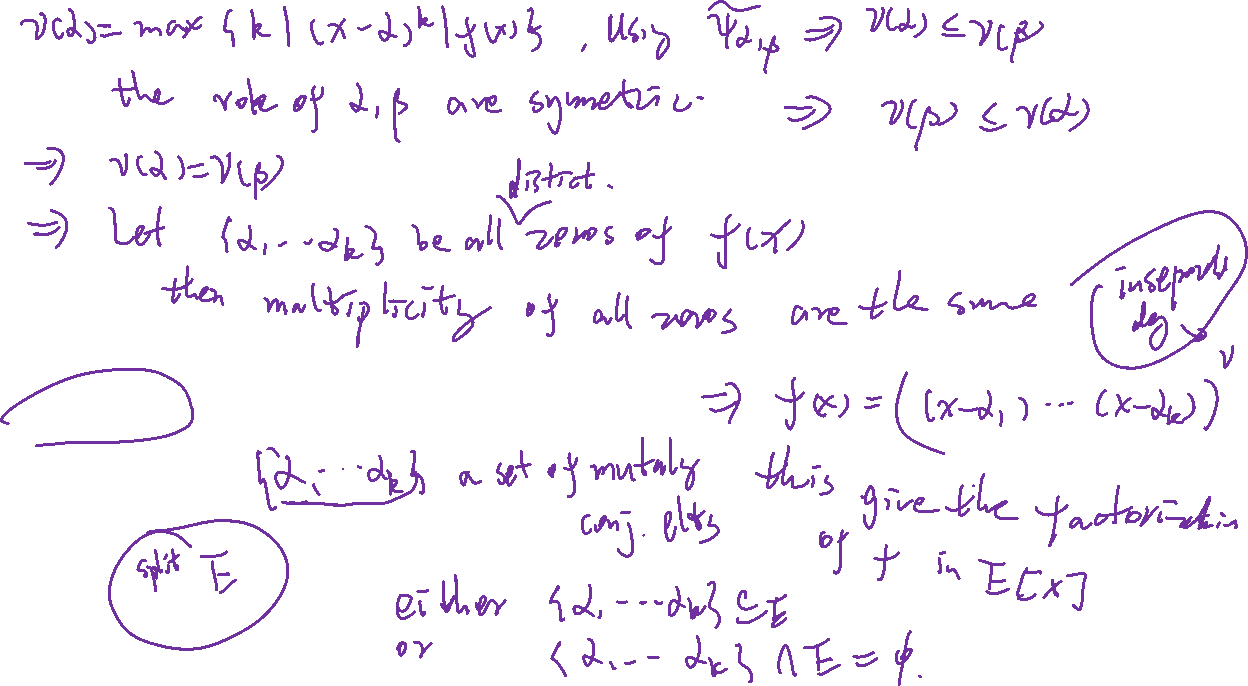 ν(α) = max {k | (x-α)^k | f(x)}, Using \widetilde{Ψ_{α,β}} ⇒ ν(α) ≤ ν(β)
the role of α, β are symmetric. ⇒ ν(β) ≤ ν(α)
⇒ ν(α)=ν(β)
distict.
⇒ Let {α, ... α_k} be all zeros of f(x)
then multiplicity of all zeros are the same
deg
⇒ f(x) = ((x-α_1) ... (x-α_k))^ν
{α, ... α_k} a set of mutaly conj. elts
this give the factorization of f in E[x]
split E
either {α, ... α_k} ⊆ E
or {α, ... α_k} ∩ E = φ.